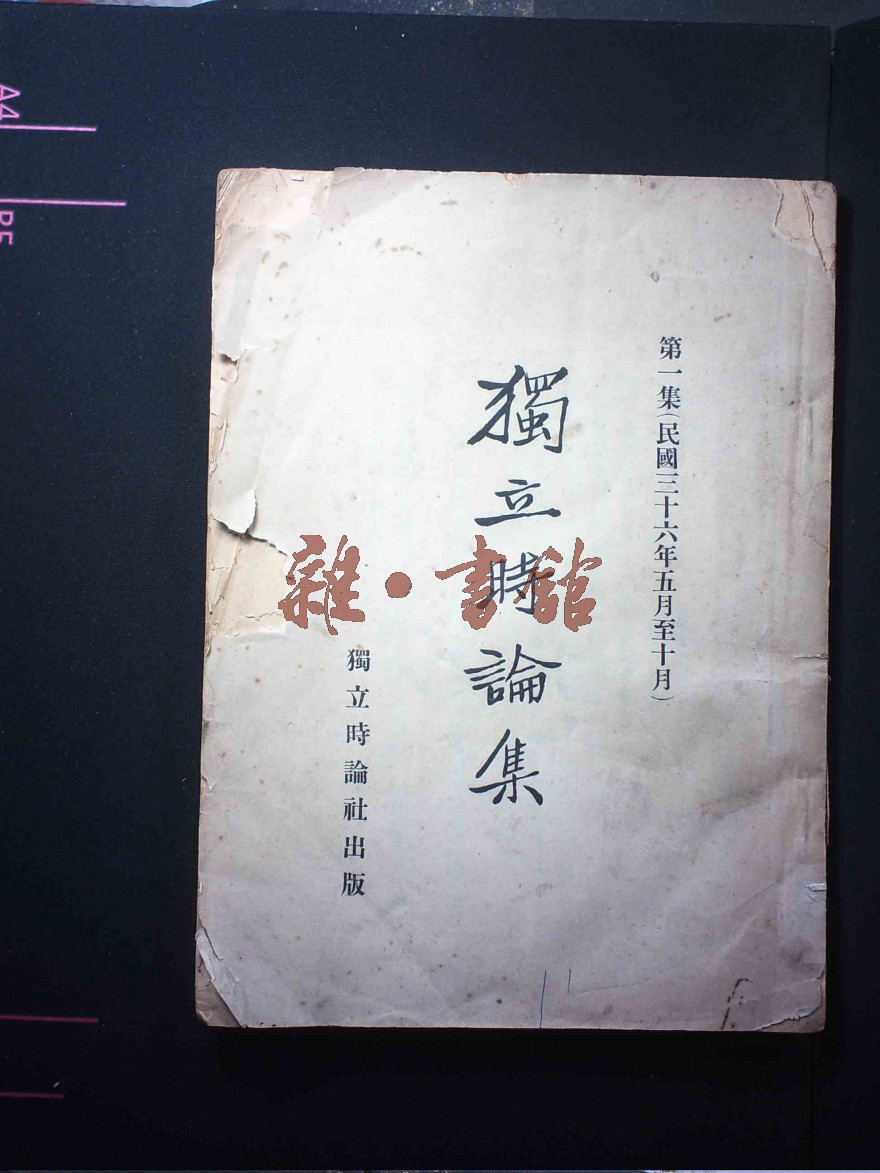 第一集(民國三十六年五月至十月)
獨立時論集
獨立時論社出版
雜•書館
A4
B5